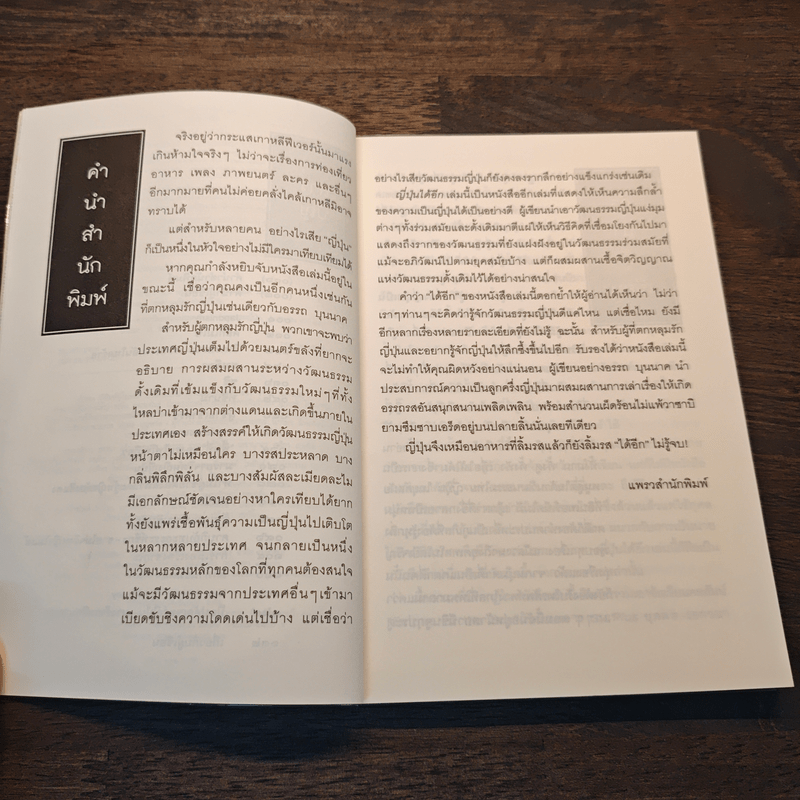 คำ
นำ
สำ
นัก
พิมพ์
จริงอยู่ว่ากระแสเกาหลีฟีเวอร์นั้นมาแรง
เกินห้ามใจจริงๆ ไม่ว่าจะเรื่องการท่องเที่ยว
อาหาร เพลง ภาพยนตร์ ละคร และอื่นๆ
อีกมากมายที่คนไม่ค่อยคลั่งไคล้เกาหลีมิอาจ
ทราบได้
แต่สำหรับหลายคน อย่างไรเสีย “ญี่ปุ่น”
ก็เป็นหนึ่งในหัวใจอย่างไม่มีใครมาเทียบเทียมได้
หากคุณกำลังหยิบจับหนังสือเล่มนี้อยู่ใน
ขณะนี้ เชื่อว่าคุณคงเป็นอีกคนหนึ่งเช่นกัน
ที่ตกหลุมรักญี่ปุ่นเช่นเดียวกับอรรถ บุนนาค
สำหรับผู้ตกหลุมรักญี่ปุ่น พวกเขาจะพบว่า
ประเทศญี่ปุ่นเต็มไปด้วยมนตร์ขลังที่ยากจะ
อธิบาย การผสมผสานระหว่างวัฒนธรรม
ดั้งเดิมที่เข้มแข็งกับวัฒนธรรมใหม่ๆ ที่ทั้ง
ไหลบ่าเข้ามาจากต่างแดนและเกิดขึ้นภายใน
ประเทศเอง สร้างสรรค์ให้เกิดวัฒนธรรมญี่ปุ่น
หน้าตาไม่เหมือนใคร บางรสประหลาด บาง
กลิ่นพิลึกพิลั่น และบางสัมผัสละเมียดละไม
มีเอกลักษณ์ชัดเจนอย่างหาใครเทียบได้ยาก
ทั้งยังแพร่เชื้อพันธุ์ความเป็นญี่ปุ่นไปเติบโต
ในหลากหลายประเทศ จนกลายเป็นหนึ่ง
ในวัฒนธรรมหลักของโลกที่ทุกคนต้องสนใจ
แม้จะมีวัฒนธรรมจากประเทศอื่นๆ เข้ามา
เบียดขับชิงความโดดเด่นไปบ้าง แต่เชื่อว่า
อย่างไรเสียวัฒนธรรมญี่ปุ่นก็ยังคงลงรากลึกอย่างแข็งแกร่งเช่นเดิม
ญี่ปุ่นได้อีก เล่มนี้เป็นหนังสืออีกเล่มที่แสดงให้เห็นความลึกล้ำ
ของความเป็นญี่ปุ่นได้เป็นอย่างดี ผู้เขียนนำเอาวัฒนธรรมญี่ปุ่นแง่มุม
ต่างๆ ทั้งร่วมสมัยและดั้งเดิมมาตีแผ่ให้เห็นวิธีคิดที่เชื่อมโยงกันไปมา
แสดงถึงรากของวัฒนธรรมที่ยังแฝงฝังอยู่ในวัฒนธรรมร่วมสมัยที่
แม้จะอภิวัฒน์ไปตามยุคสมัยบ้าง แต่ก็ผสมผสานเชื้อจิตวิญญาณ
แห่งวัฒนธรรมดั้งเดิมไว้ได้อย่างน่าสนใจ
คำว่า “ได้อีก” ของหนังสือเล่มนี้ตอกย้ำให้ผู้อ่านได้เห็นว่า ไม่ว่า
เราๆ ท่านๆ จะคิดว่ารู้จักวัฒนธรรมญี่ปุ่นดีแค่ไหน แต่เชื่อไหม ยังมี
อีกหลากเรื่องหลายรายละเอียดที่ยังไม่รู้ ฉะนั้น สำหรับผู้ที่ตกหลุมรัก
ญี่ปุ่นและอยากรู้จักญี่ปุ่นให้ลึกซึ้งขึ้นไปอีก รับรองได้ว่าหนังสือเล่มนี้
จะไม่ทำให้คุณผิดหวังอย่างแน่นอน ผู้เขียนอย่างอรรถ บุนนาค นำ
ประสบการณ์ความเป็นลูกครึ่งญี่ปุ่นมาผสมผสานการเล่าเรื่องให้เกิด
อรรถรสอันสนุกสนานเพลิดเพลิน พร้อมสำนวนเผ็ดร้อนไม่แพ้วาซาบิ
ยามซึมซาบเอร็ดอยู่บนปลายลิ้นนั่นเลยทีเดียว
ญี่ปุ่นจึงเหมือนอาหารที่ลิ้มรสแล้วก็ยังลิ้มรส “ได้อีก” ไม่รู้จบ!
แพรวสำนักพิมพ์